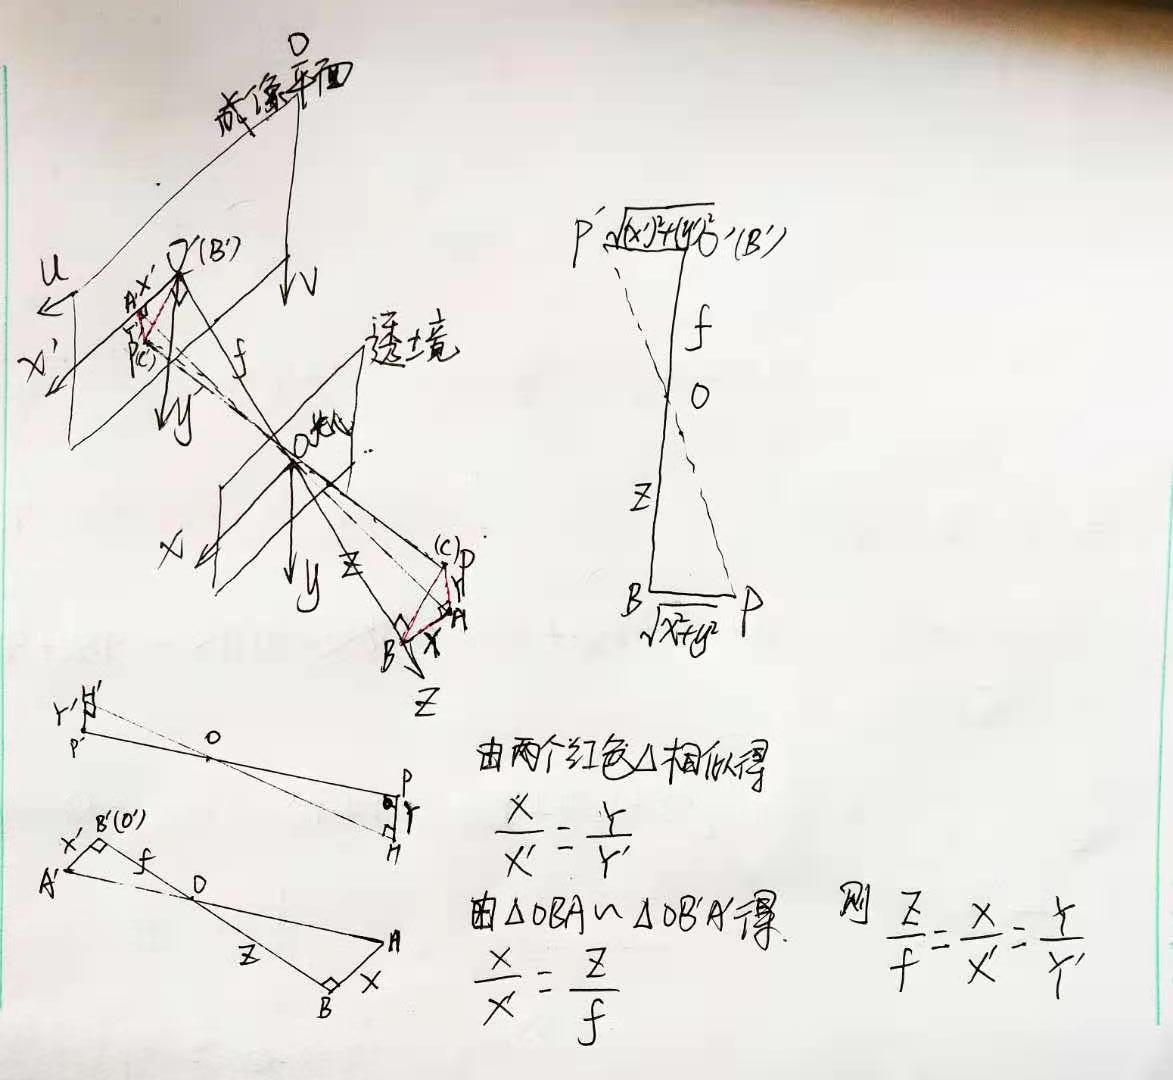 O
成像平面
O'(B')
u
V
A' X'
X'
Y'
P'(C')
y
f
透境
O光心
X
y
Z
(C)
P
Y
A
X
B
Z
P' √(x')²+(y')² O'(B')
f
O
Z
B
P
√x²+y²
Y' A'
P'
O
P
Y
A
B'(O')
X'
A'
f
O
Z
A
X
B
由两个红色△相似得
X/X' = Y/Y'
由△OBA∽△OB'A'得
X/X' = Z/f
则 Z/f = X/X' = Y/Y'